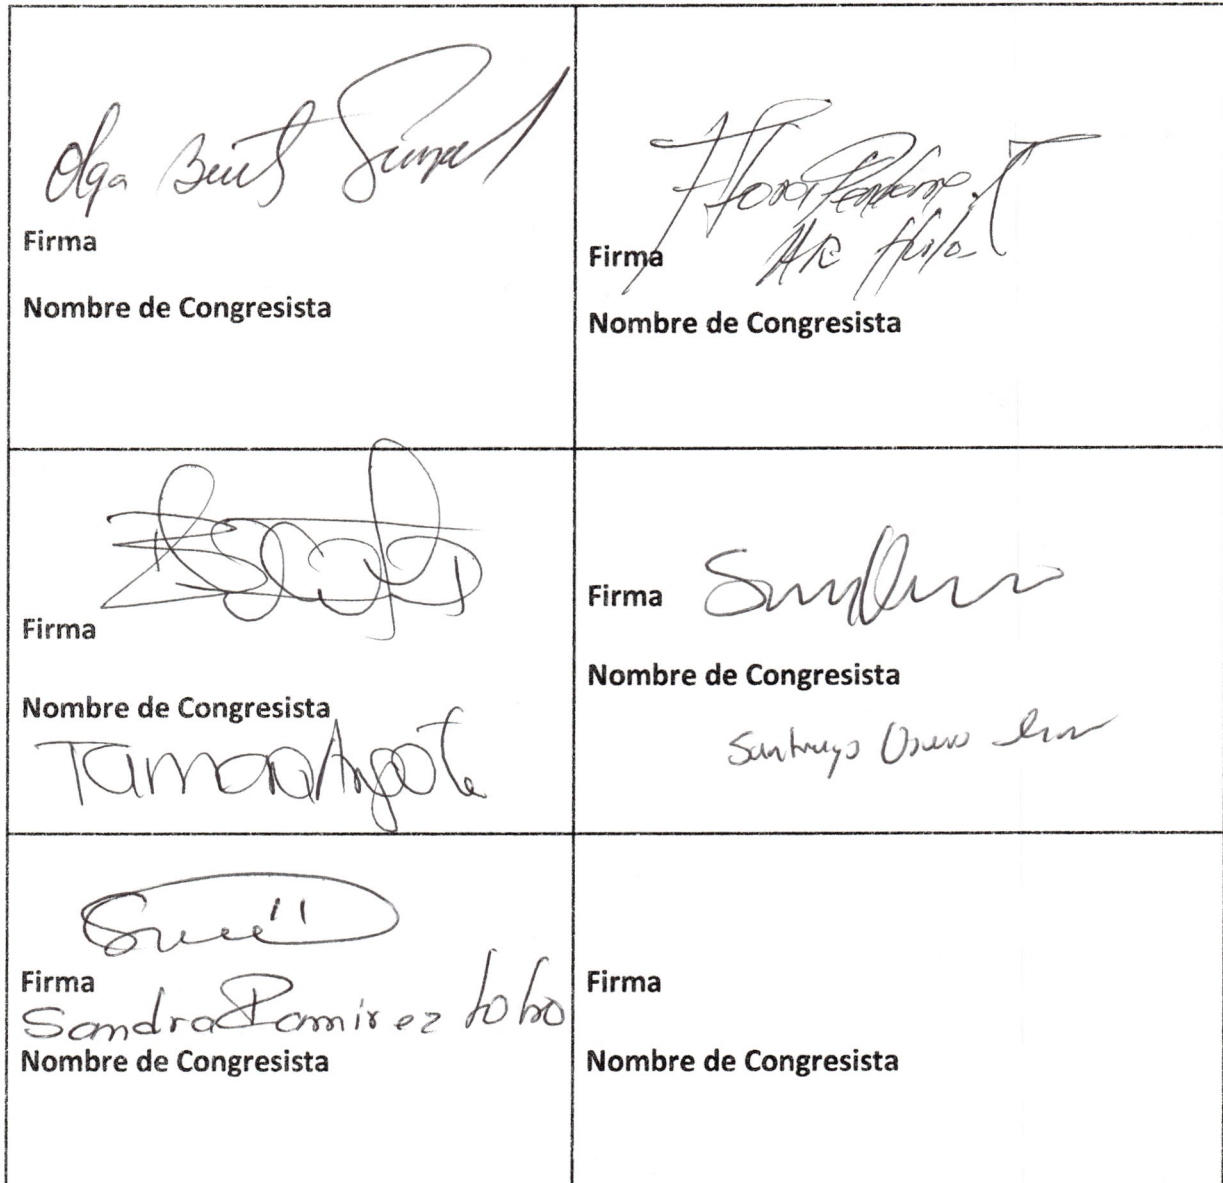 Olga
Firma
Nombre de Congresista
Flora Perdomo
HR Huila
Firma
Nombre de Congresista
Firma
Nombre de Congresista
Tamara Argote
Firma
Nombre de Congresista
Santiago Osorio
Firma
Sandra Ramirez Lobo
Nombre de Congresista
Firma
Nombre de Congresista